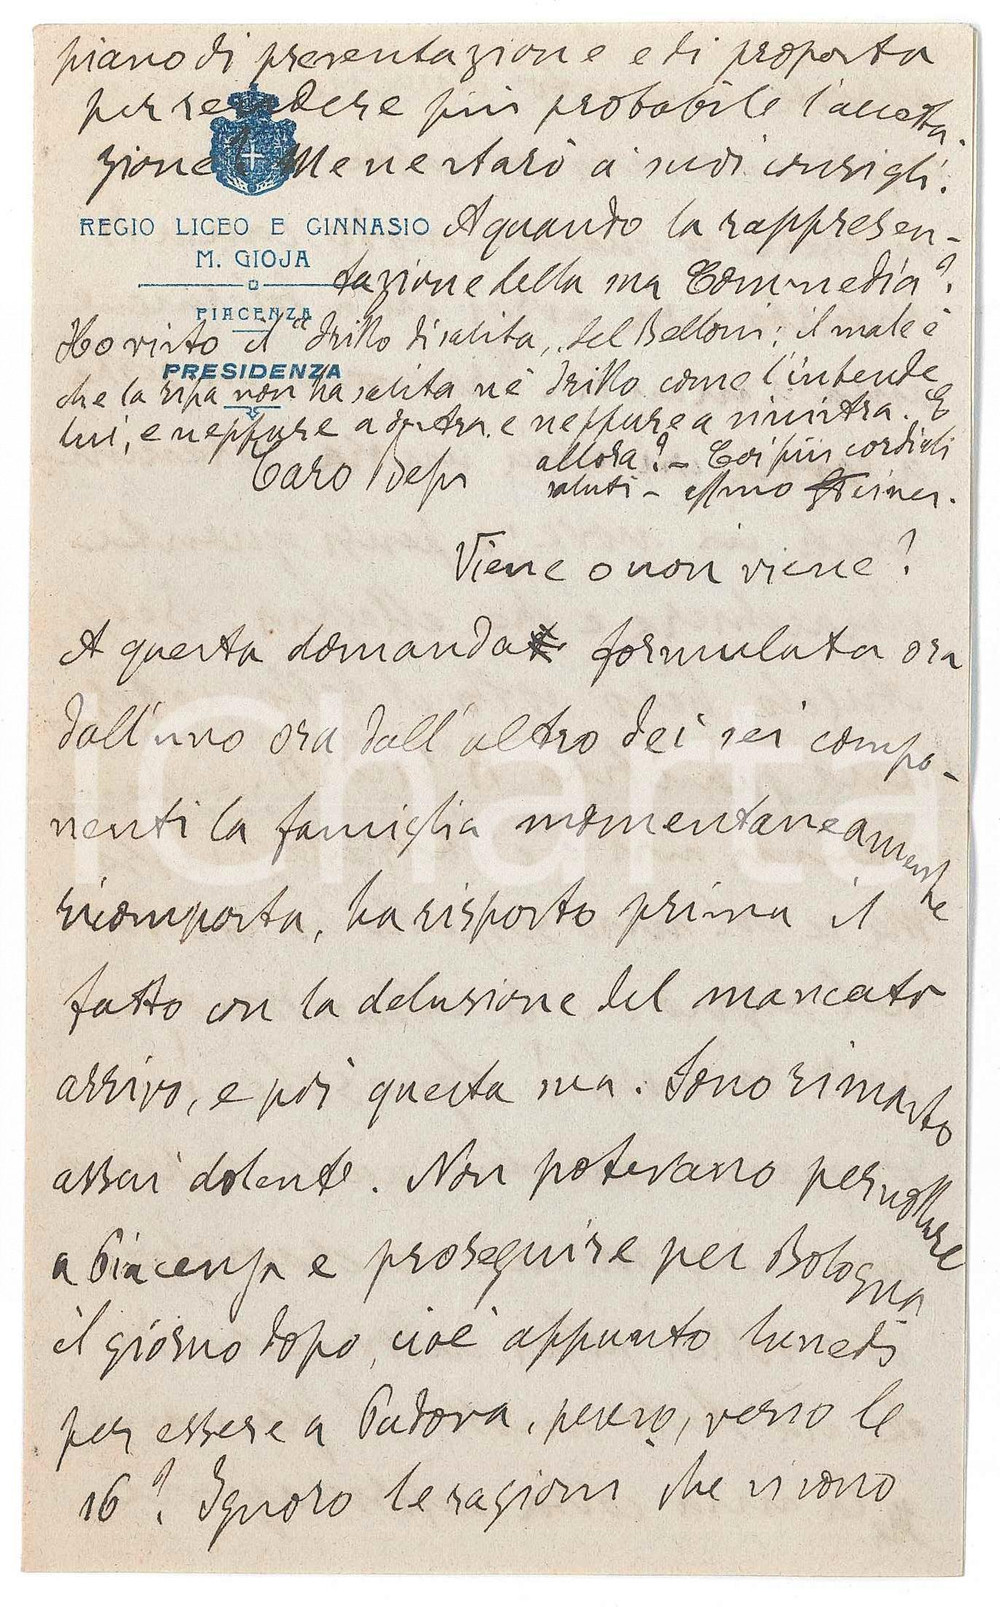 piano di presentazione e di proposta
per rendere più probabile l'accetta-
zione? Me ne starò ai suoi consigli.
REGIO LICEO E GINNASIO
M. GIOJA
PIACENZA
PRESIDENZA
A quando la rappresen-
tazione della sua Commedia?
Ho visto il "Drillo di salita", del Belloni; il male è
che la ripa non ha salita nè Drillo come l'intende
lui, e neppure a destra e neppure a sinistra. E
allora? - Coi più cordiali
saluti - affmo
Caro
Viene o non viene?
A questa domanda formulata ora
dall'uno ora dall'altro dei sei compo-
nenti la famiglia momentaneamente
ricomposta, ha risposto prima il
fatto con la delusione del mancato
arrivo, e poi questa sua. Sono rimasto
assai dolente. Non potevano pernottare
a Piacenza e proseguire per Bologna
il giorno dopo, cioè appunto lunedì
per essere a Padova, penso, verso le
16? Ignoro le ragioni che vi sono
iCharta